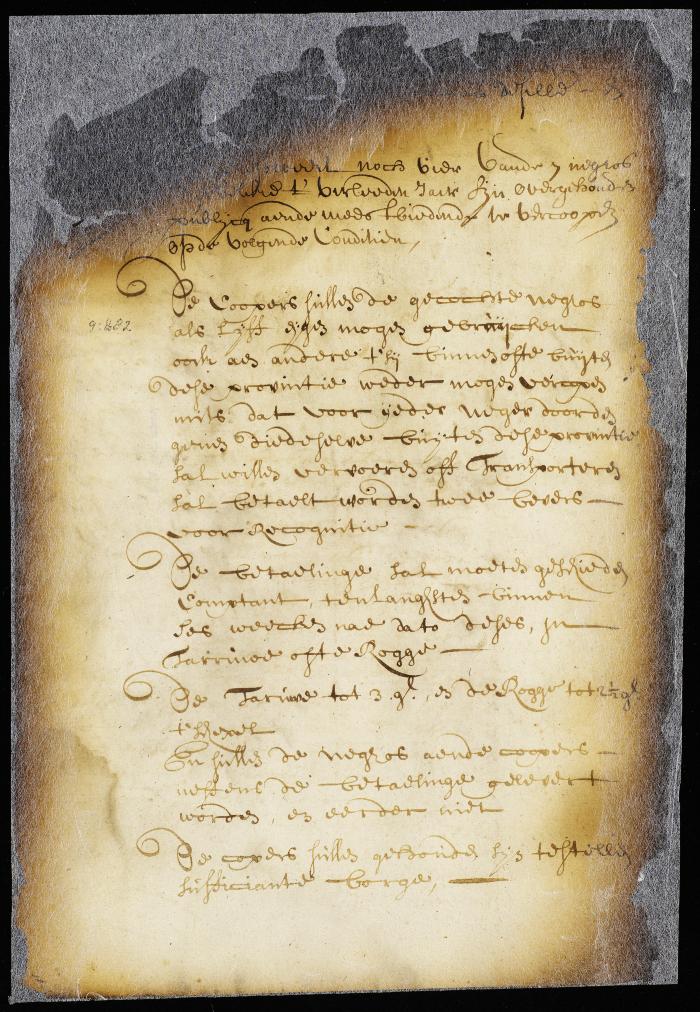 noch vier vande 7 negros
t' verleeden Jaer syn overgehouden
publycq aende meest biedende te vercoopen
op de volgende Conditien,
De Coopers sullen de gecochte negros
als lyff eygen mogen gebruijcken
oock aen andere t'sy binnen ofte buyten
dese provintie weder mogen vercopen
mits dat voor ijeder neger door den
genen die deselve buyten dese provintie
sal willen vervoeren off Transporteren
sal betaelt worden twee bevers
voor Recognitie
9:882
De betaelinge sal moeten geschieden
Comptant, ten langhsten binnen
ses weecken nae dato deses, in
Tarruwe ofte Rogge
De Taruwe tot 3 gl., en de Rogge tot 2½ gl
t'schepel
En sullen de negros aende coopers
neffens de betaelinge gelevert
worden, en eerder niet
De copers sullen gehouden syn te stellen
sufficiante borge,